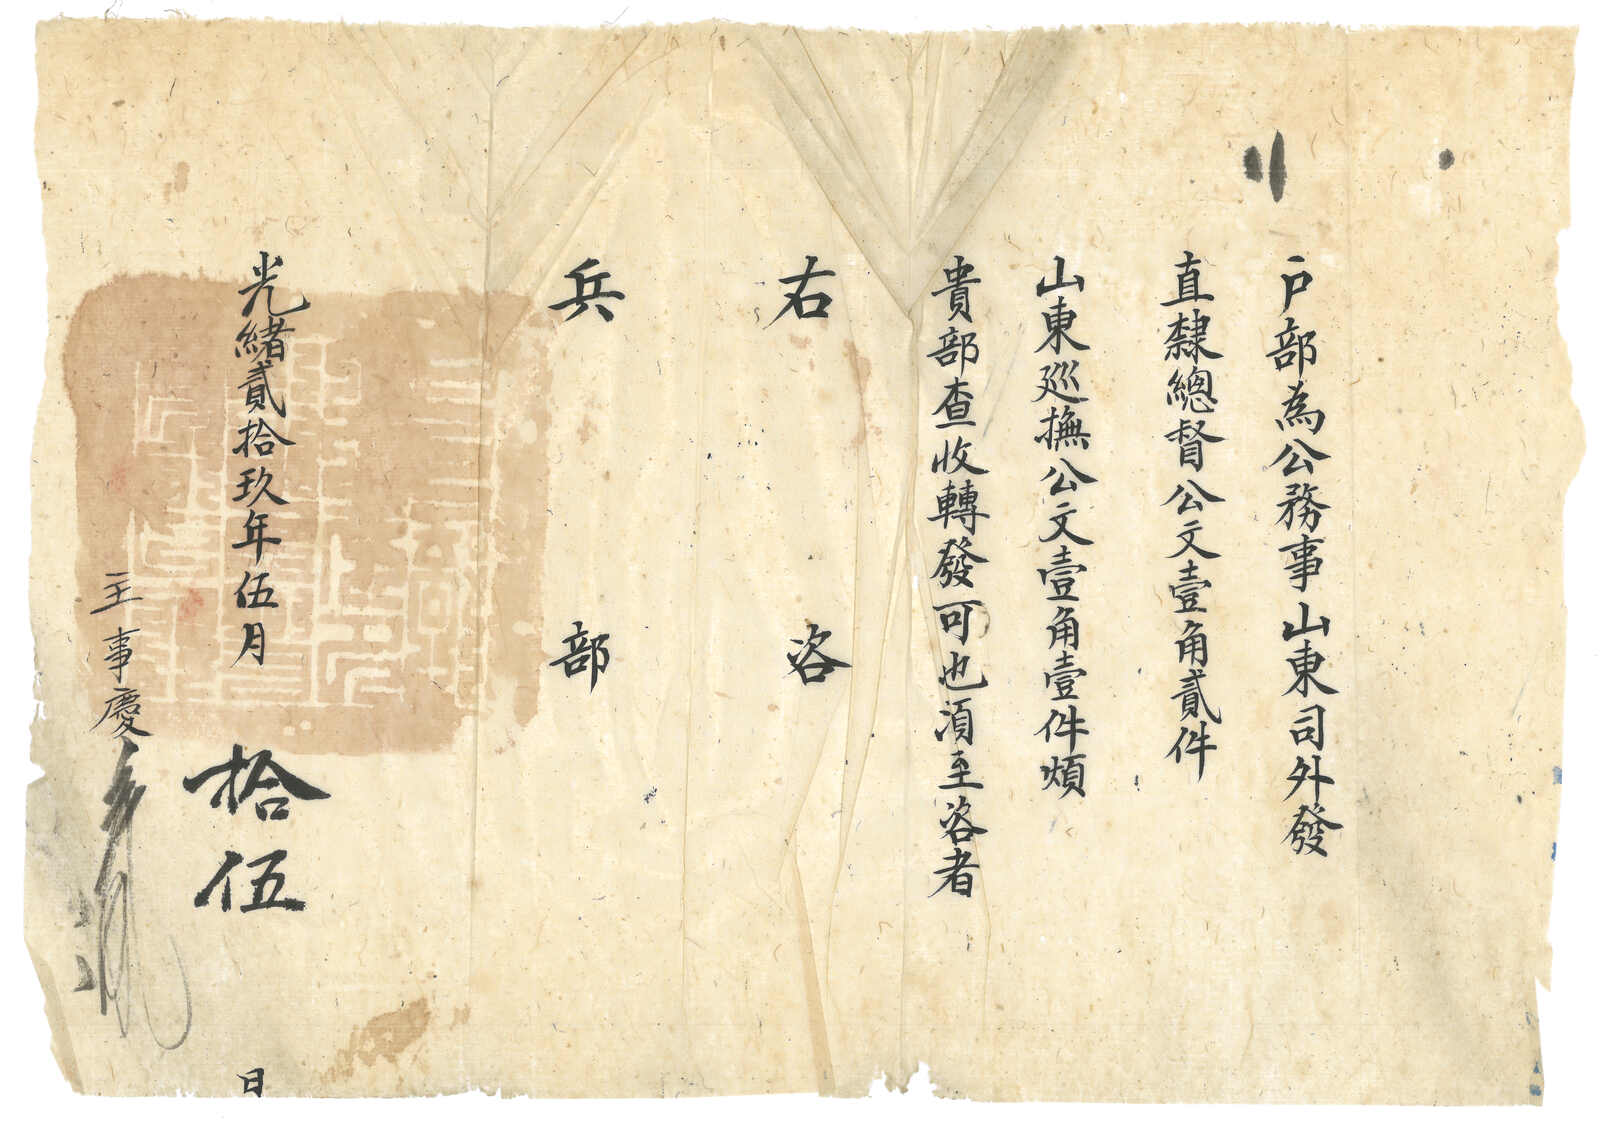 戶部為公務事山東司外發
直隸總督公文壹角貳件
山東巡撫公文壹角壹件煩
貴部查收轉發可也須至咨者
右咨
兵部
光緒貳拾玖年伍月拾伍日
主事慶